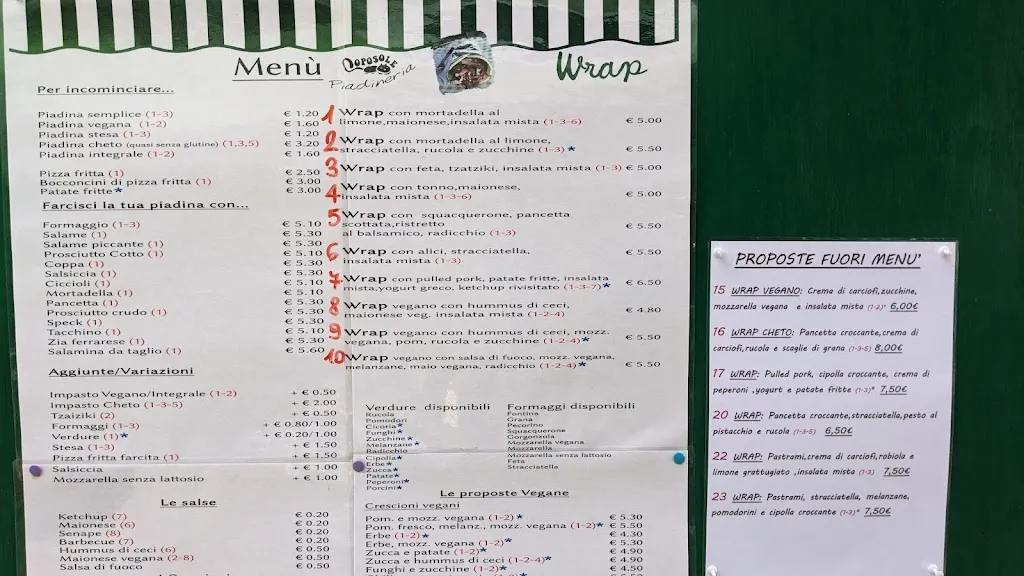 Menù
DOROSOLE
Piadineria
Wrap
Per incominciare...
Piadina semplice (1-3) € 1.20
Piadina vegana (1-2) € 1.60
Piadina stesa (1-3) € 1.20
Piadina cheto (quasi senza glutine) (1,3,5) € 3.20
Piadina integrale (1-2) € 1.60
Pizza fritta (1) € 2.50
Bocconcini di pizza fritta (1) € 3.00
Patate fritte* € 3.00
Farcisci la tua piadina con...
Formaggio (1-3) € 5.10
Salame (1) € 5.30
Salame piccante (1) € 5.30
Prosciutto Cotto (1) € 5.10
Coppa (1) € 5.30
Salsiccia (1) € 5.30
Ciccioli (1) € 5.10
Mortadella (1) € 5.10
Pancetta (1) € 5.30
Prosciutto crudo (1) € 5.30
Speck (1) € 5.30
Tacchino (1) € 5.10
Zia ferrarese (1) € 5.30
Salamina da taglio (1) € 5.60
Aggiunte/Variazioni
Impasto Vegano/Integrale (1-2) + € 0.50
Impasto Cheto (1-3-5) + € 2.00
Tzaiziki (2) + € 0.50
Formaggi (1-3) + € 0.80/1.00
Verdure (1)* + € 0.20/1.00
Stesa (1-3) + € 1.50
Pizza fritta farcita (1) + € 1.50
Salsiccia + € 1.00
Mozzarella senza lattosio + € 1.00
Le salse
Ketchup (7) € 0.20
Maionese (6) € 0.20
Senape (8) € 0.20
Barbecue (7) € 0.20
Hummus di ceci (6) € 0.50
Maionese vegana (2-8) € 0.50
Salsa di fuoco € 0.50
1 Wrap con mortadella al
limone,maionese,insalata mista (1-3-6) € 5.00
2 Wrap con mortadella al limone,
stracciatella, rucola e zucchine (1-3)* € 5.50
3 Wrap con feta, tzatziki, insalata mista (1-3) € 5.00
4 Wrap con tonno,maionese,
insalata mista (1-3-6) € 5.00
5 Wrap con squacquerone, pancetta
scottata,ristretto
al balsamico, radicchio (1-3) € 5.50
6 Wrap con alici, stracciatella,
insalata mista (1-3) € 5.50
7 Wrap con pulled pork, patate fritte, insalata
mista,yogurt greco, ketchup rivisitato (1-3-7)* € 6.50
8 Wrap vegano con hummus di ceci,
maionese veg. insalata mista (1-2-4) € 4.80
9 Wrap vegano con hummus di ceci, mozz.
vegana, pom, rucola e zucchine (1-2-4)* € 5.50
10 Wrap vegano con salsa di fuoco, mozz. vegana,
melanzane, maio vegana, radicchio (1-2-4)* € 5.50
Verdure disponibili
Rucola
Pomodori
Cicoria*
Funghi*
Zucchine*
Melanzane*
Radicchio
Cipolla*
Erbe*
Zucca*
Patate*
Peperoni*
Porcini*
Formaggi disponibili
Fontina
Grana
Pecorino
Squacquerone
Gorgonzola
Mozzarella vegana
Mozzarella
Mozzarella senza lattosio
Feta
Stracciatella
Le proposte Vegane
Crescioni vegani
Pom. e mozz. vegana (1-2)* € 5.30
Pom. fresco, melanz., mozz. vegana (1-2)* € 5.50
Erbe (1-2)* € 4.30
Erbe, mozz. vegana (1-2)* € 5.30
Zucca e patate (1-2)* € 4.90
Zucca e hummus di ceci (1-2-4)* € 4.90
Funghi e zucchine (1-2)* € 4.50
PROPOSTE FUORI MENU'
15 WRAP VEGANO: Crema di carciofi,zucchine,
mozzarella vegana e insalata mista (1-2)* 6,00€
16 WRAP CHETO: Pancetta croccante,crema di
carciofi,rucola e scaglie di grana (1-3-5) 8,00€
17 WRAP: Pulled pork, cipolla croccante, crema di
peperoni ,yogurt e patate fritte (1-3)* 7,50€
20 WRAP: Pancetta croccante,stracciatella,pesto al
pistacchio e rucola (1-3-5) 6,50€
22 WRAP: Pastrami,crema di carciofi,robiola e
limone grattugiato ,insalata mista (1-3) 7,50€
23 WRAP: Pastrami, stracciatella, melanzane,
pomodorini e cipolla croccante (1-3)* 7,50€